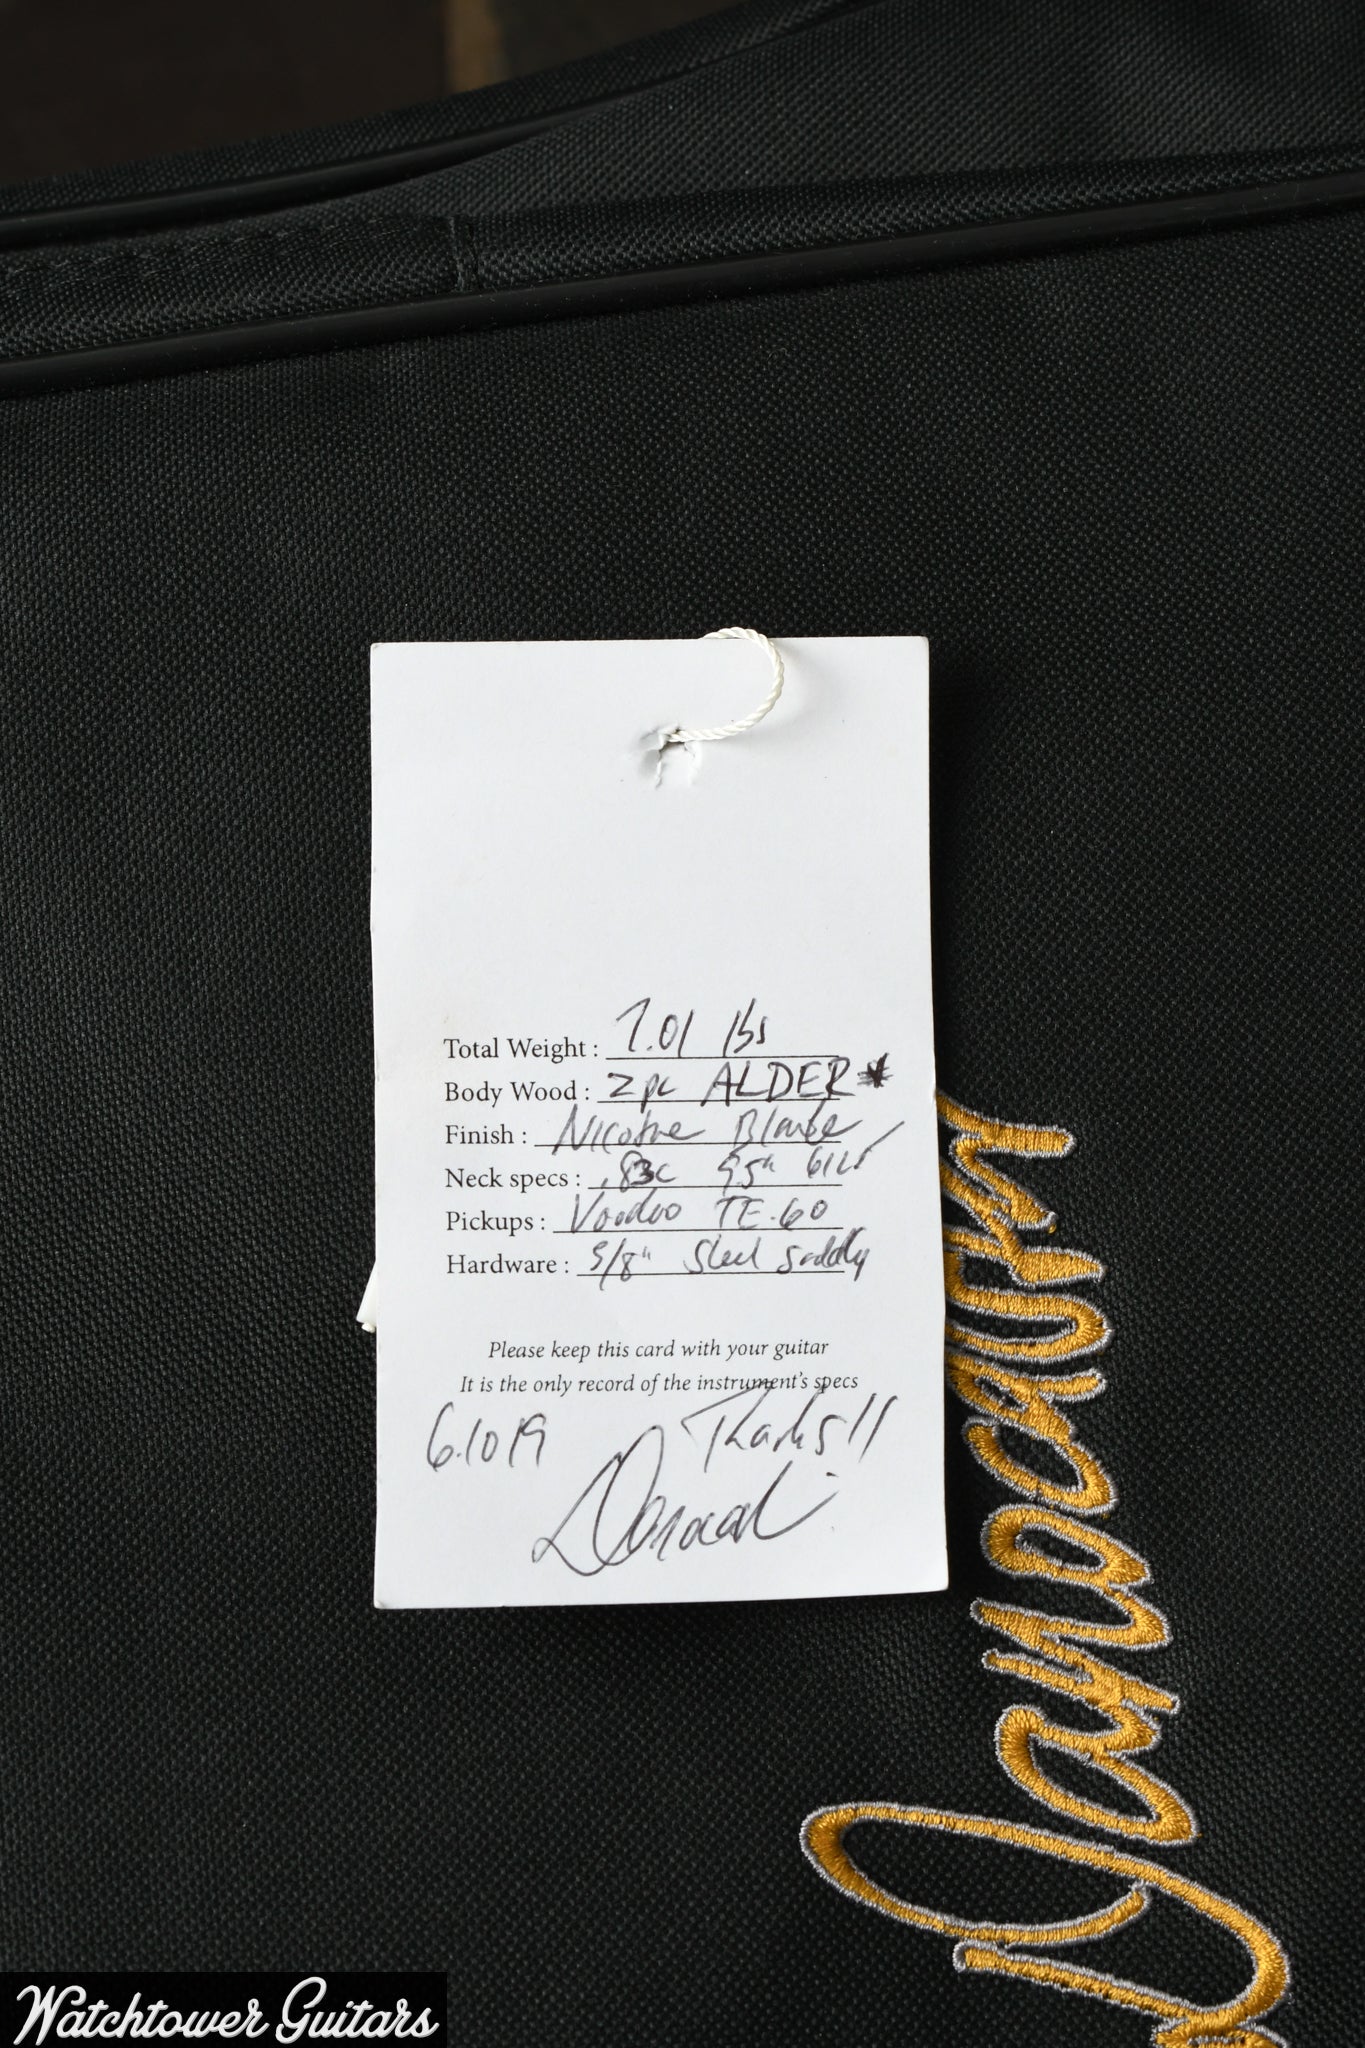 Total Weight : 7.01 lbs
Body Wood : 2 pc ALDER*
Finish : Nicotine Blonde
Neck specs : .83C 9.5" 6105
Pickups : Voodoo TE-60
Hardware : 5/8" Steel Saddles
Please keep this card with your guitar
It is the only record of the instrument's specs
6.10 19 Thanks!!
Danocaster
Watchtower Guitars